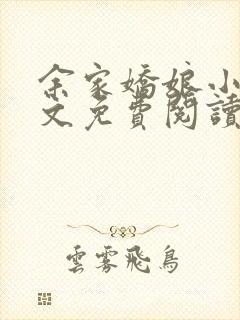 余家嬌娘小
文免費閱讀
雲霧飛鳥